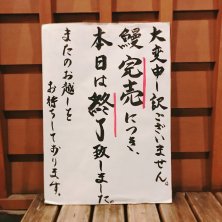 大変申し訳ございません。
鰻完売につき、
本日は終了致しました。
またのお越しを
お待ちしております。